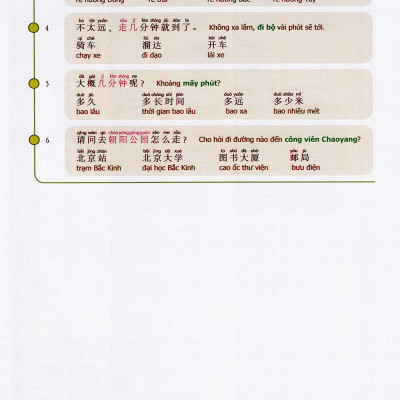 4
bú tài yuǎn, zǒu jǐ fēn zhōng jiù dào le
不太远，走几分钟就到了。 Không xa lắm, đi bộ vài phút sẽ tới.
qí chē liū da kāi chē
骑车 溜达 开车
chạy xe đi dạo lái xe
5
dà gài jǐ fēn zhōng ne
大概几分钟呢？ Khoảng mấy phút?
duō jiǔ duō cháng shí jiān duō yuǎn duō shǎo mǐ
多久 多长时间 多远 多少米
bao lâu thời gian bao lâu bao xa bao nhiêu mét
6
qǐng wèn qù cháo yáng gōng yuán zěn me zǒu
请问去朝阳公园怎么走？ Cho hỏi đi đường nào đến công viên Chaoyang?
běi jīng zhàn běi jīng dà xué tú shū dà shà yóu jú
北京站 北京大学 图书大厦 邮局
trạm Bắc Kinh đại học Bắc Kinh cao ốc thư viện bưu điện